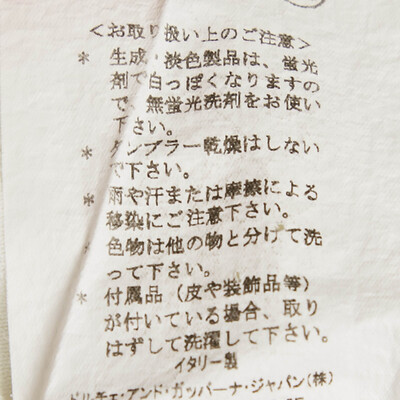 ＜お取り扱い上のご注意＞
* 生成・淡色製品は、蛍光
剤で白っぽくなりますの
で、無蛍光洗剤をお使い
下さい。
* タンブラー乾燥はしない
で下さい。
* 雨や汗または摩擦による
移染にご注意下さい。
* 色物は他の物と分けて洗
って下さい。
* 付属品（皮や装飾品等）
が付いている場合、取り
はずして洗濯して下さい。
イタリー製
ドルチェ・アンド・ガッバーナ・ジャパン(株)